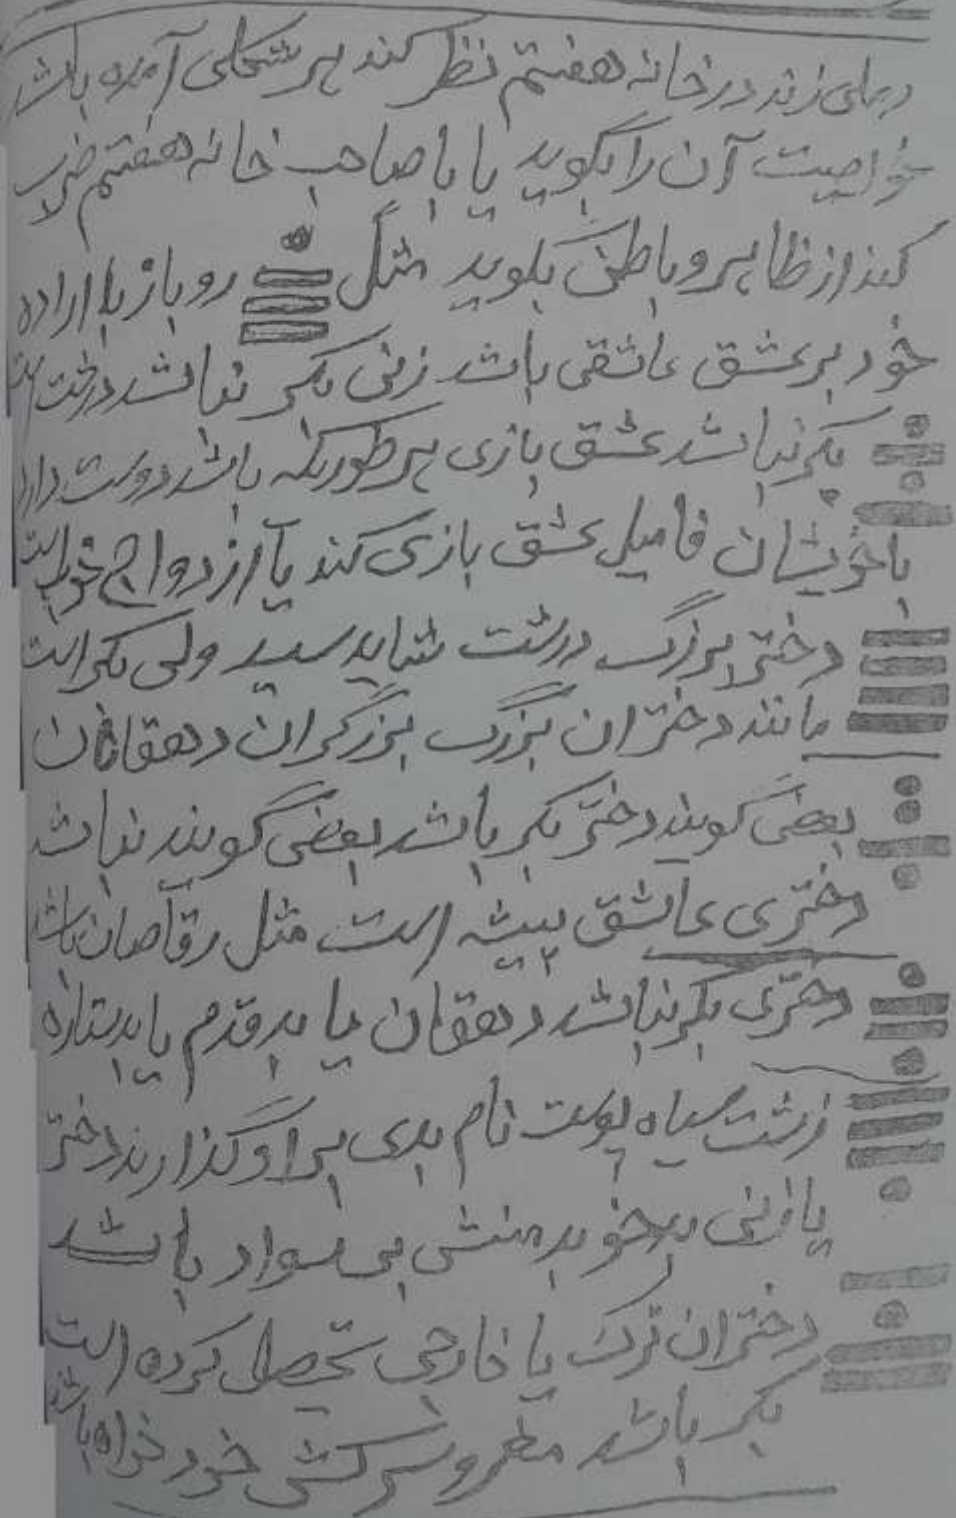 رملی زند در خانه هفتم نظر کند هر شکلی آمده باشد
خواصیت آن را بگوید یا با صاحب خانه هفتم ضرب
کند از ظاهر و باطن بگوید شکل رو باز با اراده
خود بر عشق عاشقی باشد زنی بکر نباشد درشت است
بکر نباشد عشق بازی هر طوریکه باشد دوست دارد
با خویشان فامیل عشق بازی کند یا ازدواج خواست
دختر بزرگ درشت شاید سید ولی بکر است
مانند دختران بزرگ بزرگران دهقانان
بعضی گویند دختر بکر باشد بعضی گویند نباشد
دختری عاشق پیشه است مثل رقاصان باشد
دختری بکر نباشد دهقان یا بد قدم یا بد ستاره
زشت سیاه پوست نام بدی بر او گذارند دختر
یا زنی بد خو بد منش بی سواد باشد
دختران ترک یا خارجی تحصیل کرده است
بکر باشد مغرور سرکش خود خواه باشد